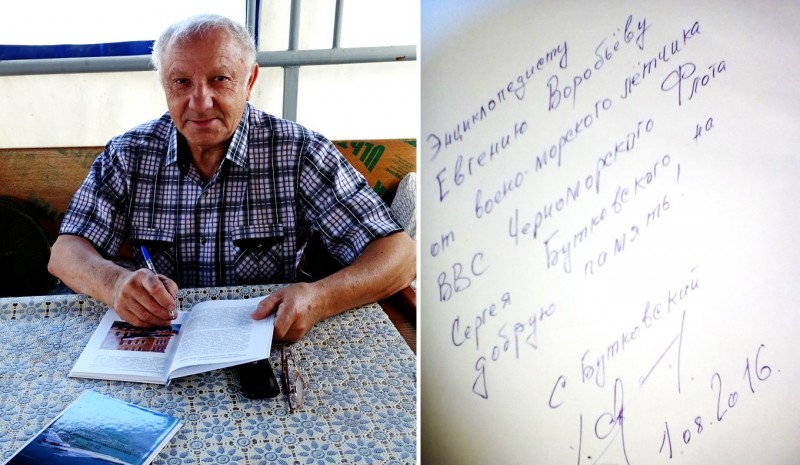 Энциклопедисту
Евгению Воробьёву
от военно-морского лётчика
ВВС Черноморского Флота
Сергея Бутковского, на
добрую память!
С Бутковский
1.08.2016.